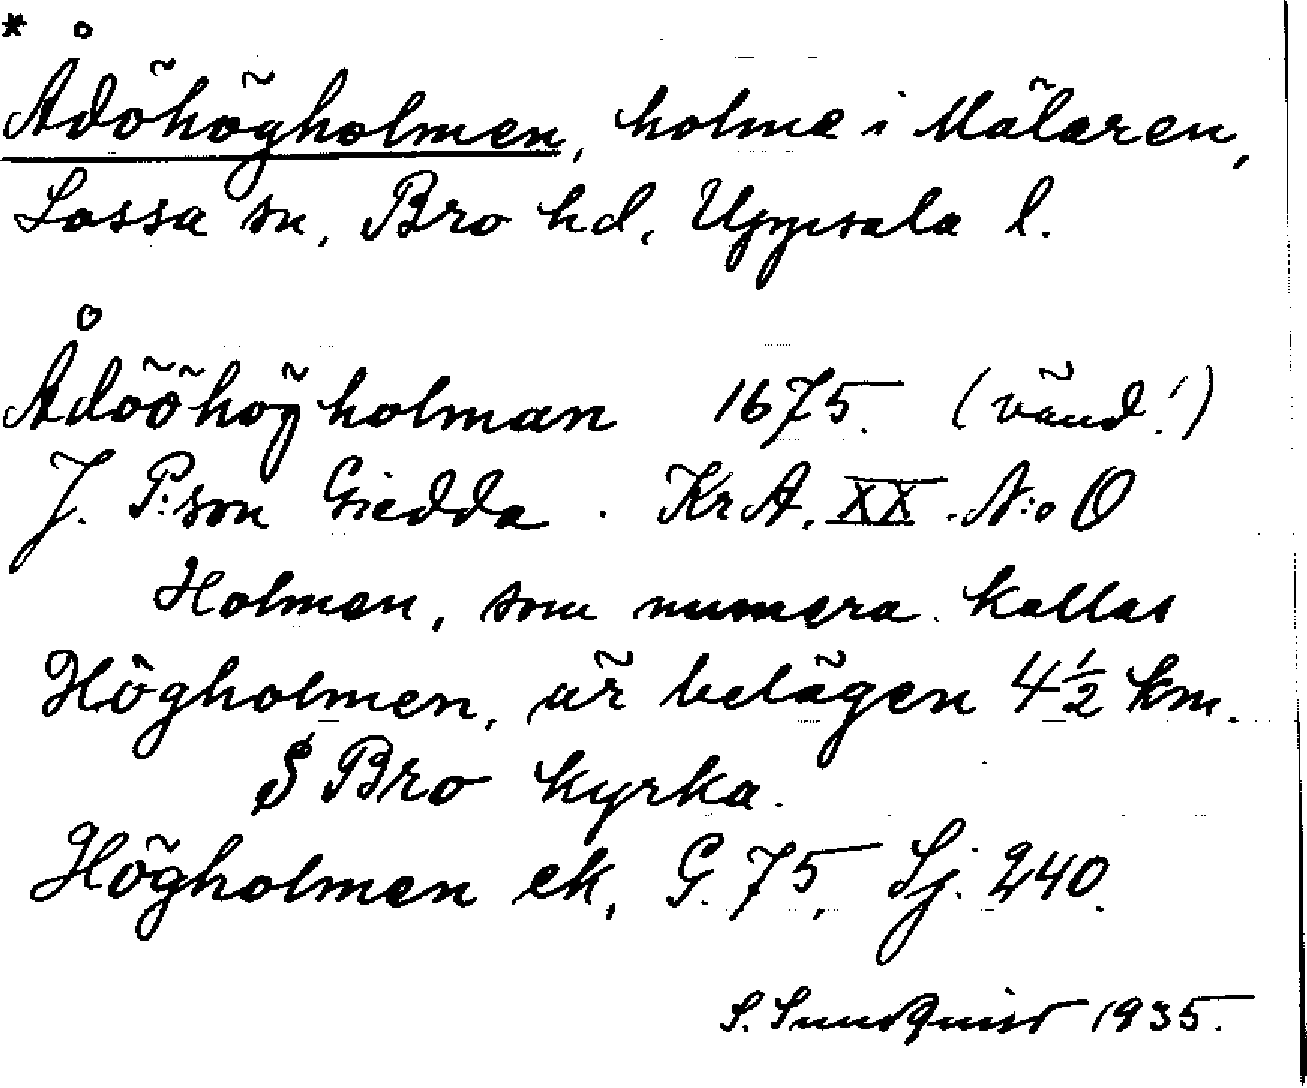 * Ådöhögholmen, holme i Mälaren,
Lossa sn, Bro hd, Uppsala l.
Ådööhögholman 1675. (vänd!)
J. P:son Giedda. KrA. XX. N:o O
Holmen, som numera kallas
Högholmen, är belägen 4½ km.
S Bro kyrka.
Högholmen ek, G. 75, Lj. 240.
S. Sundquist 1935.